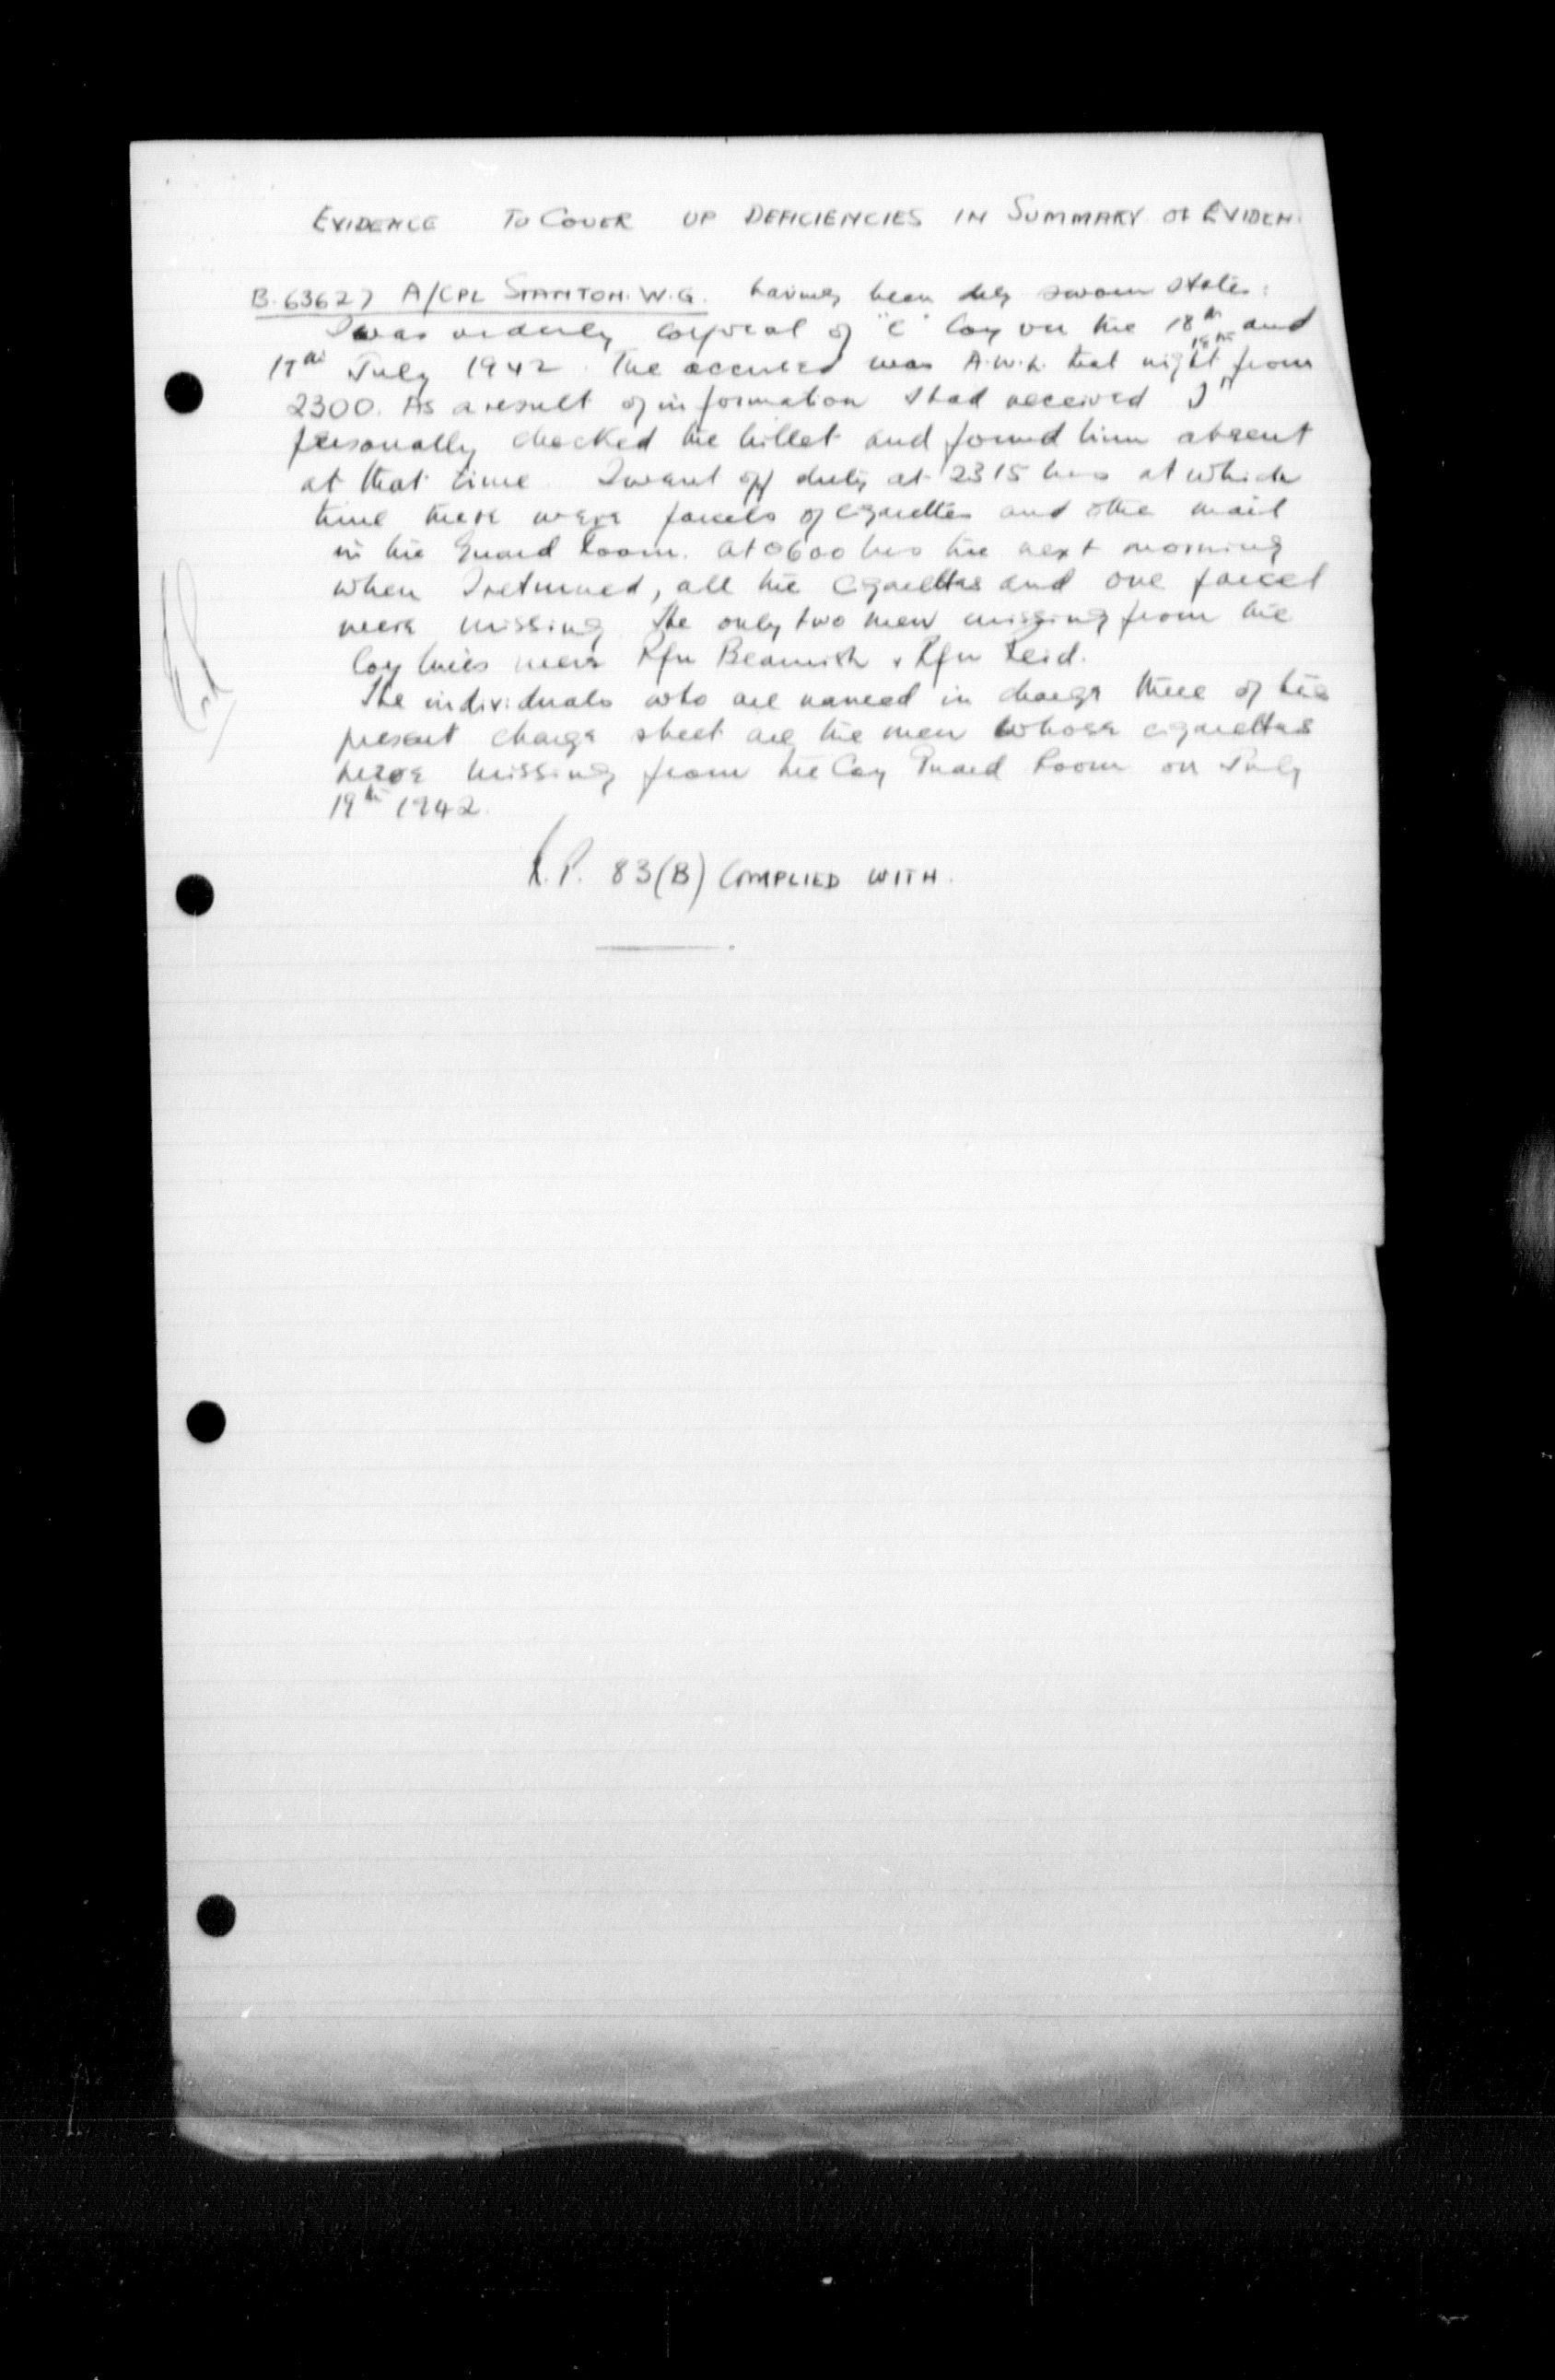 EVIDENCE TO COVER UP DEFICIENCIES IN SUMMARY OF EVIDEN
B.63627 A/CPL STANTON. W.G. having been duly sworn states:
I was orderly corporal of "C" Coy on the 18th and
19th July 1942. The accused was A.W.L. that night 18th from
2300. As a result of information I had received I
personally checked the billet and found him absent
at that time. I went off duty at 2315 hrs at which
time there were parcels of cigarettes and other mail
in the Guard Room. At 0600 hrs the next morning
when I returned, all the cigarettes and one parcel
were missing. The only two men missing from the
Coy lines were Rfn Beamish & Rfn Reid.
The individuals who are named in charge three of this
present charge sheet are the men whose cigarettes
were missing from the Coy Guard Room on July
19th 1942.
R.P. 83(B) COMPLIED WITH.